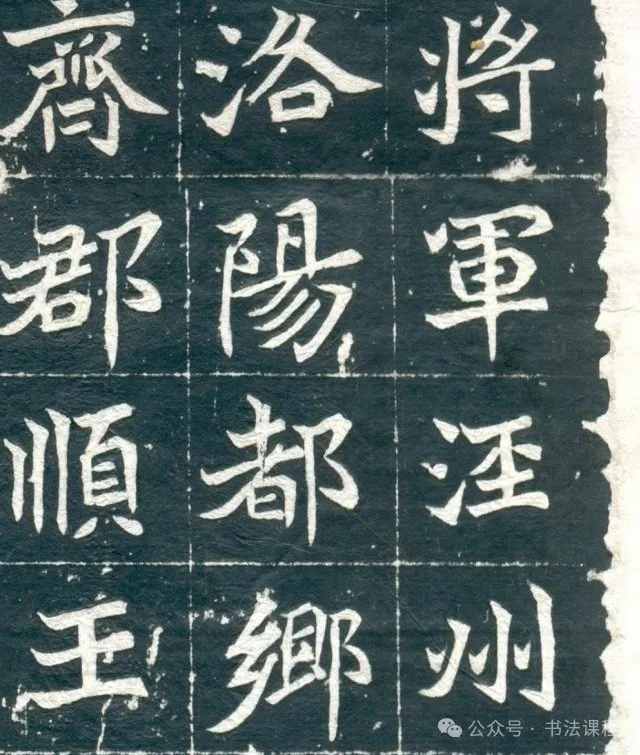 將軍涇州
洛陽都鄉
齊郡順王
公众号 · 书法课程